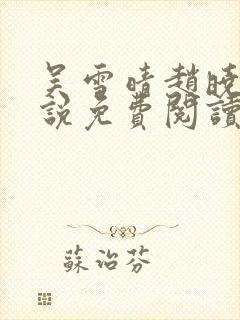 吴雪晴趙曉
說免費閱讀
蘇治芬